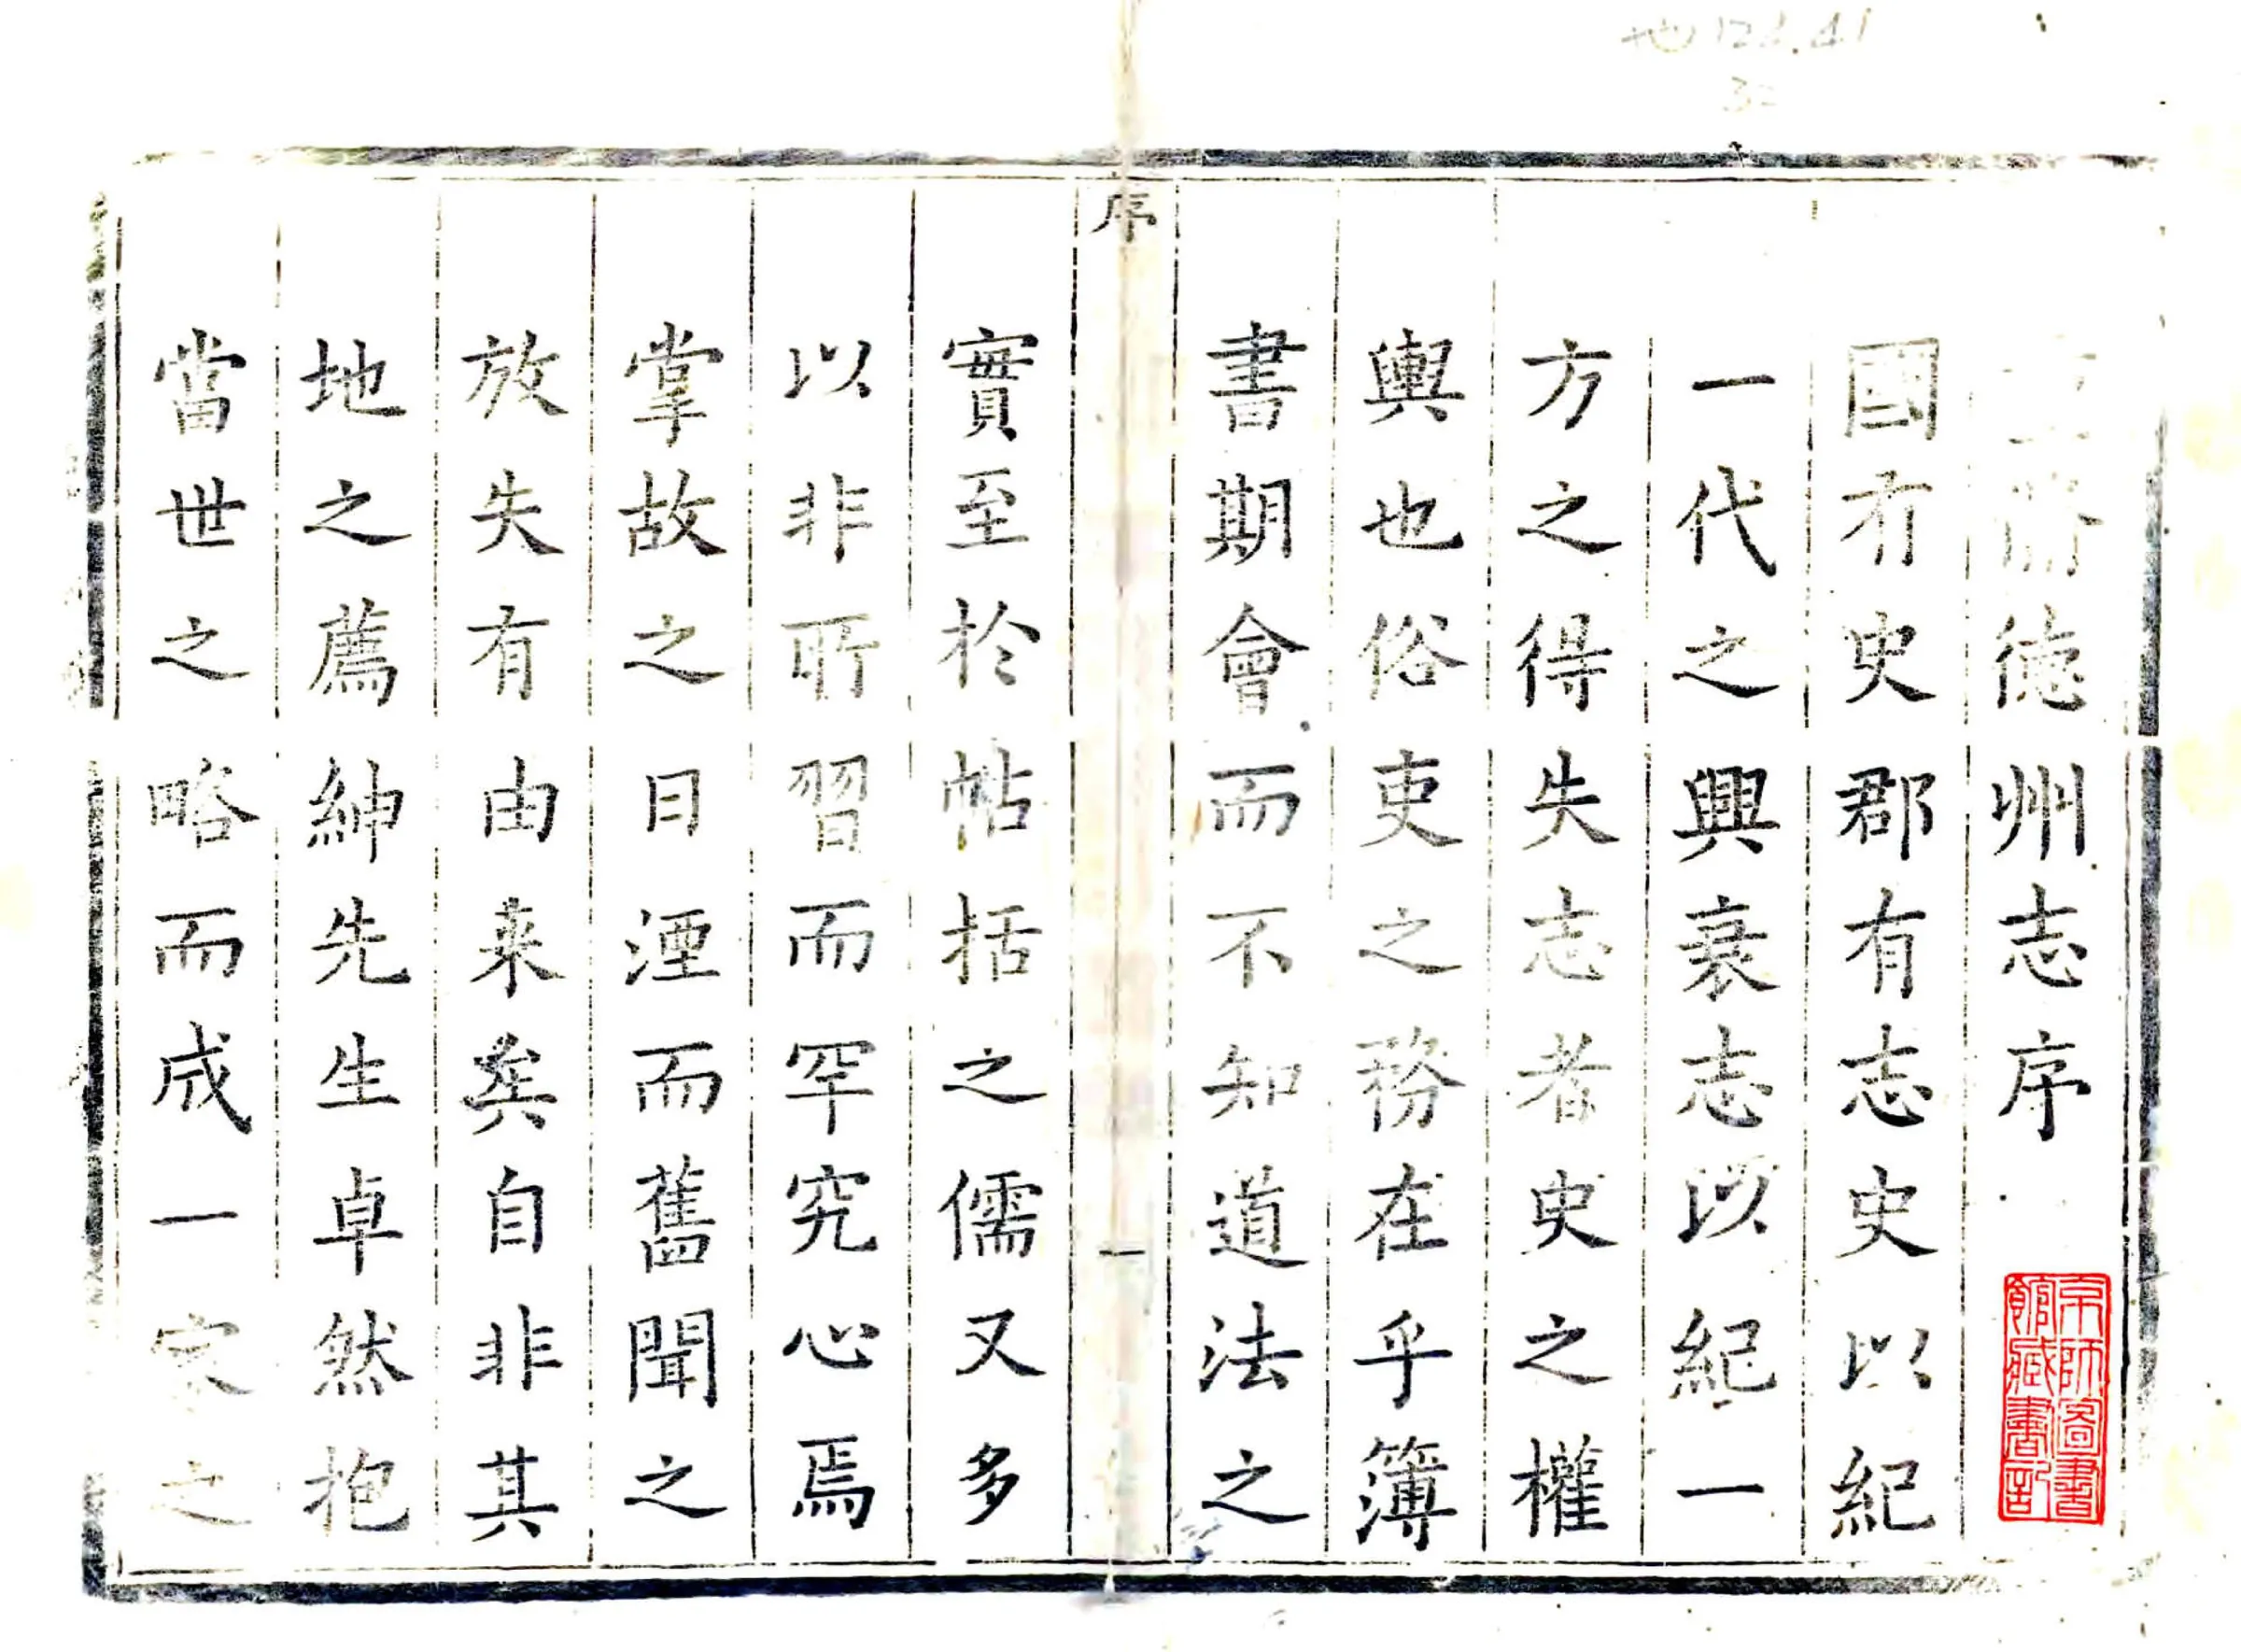 脩徳州志序
京師圖書
館藏書記
國有史郡有志史以紀
一代之興衰志以紀一
方之得失志者史之權
輿也俗吏之務在乎簿
書期會而不知道法之
序
一
實至於帖括之儒又多
以非所習而罕究心焉
掌故之日湮而舊聞之
放失有由来矣自非其
地之薦紳先生卓然抱
當世之略而成一家之